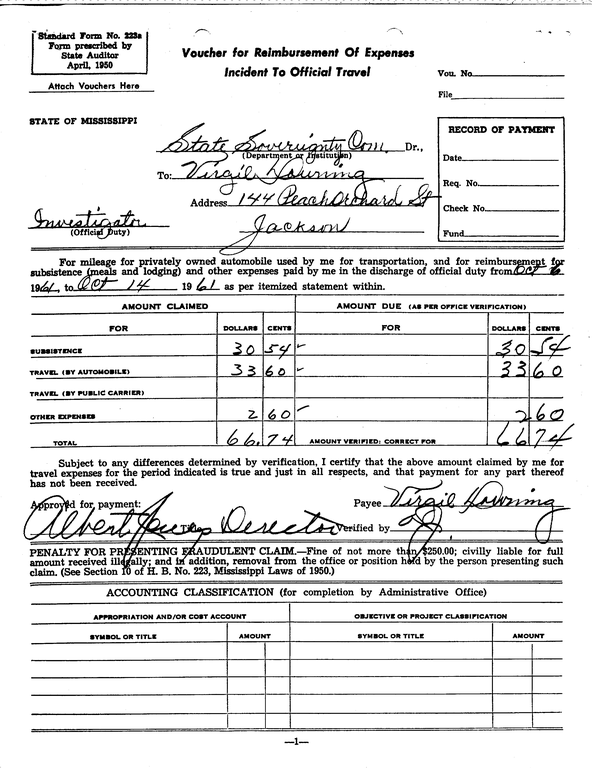 Standard Form No. 223a
Form prescribed by
State Auditor
April, 1950
Attach Vouchers Here
Voucher for Reimbursement Of Expenses
Incident To Official Travel
Vou. No.
File
STATE OF MISSISSIPPI
State Sovereignty Com. Dr.,
(Department or Institution)
To: Virgil Downing
Address 144 Peach Orchard St
Jackson
Investigator
(Official Duty)
RECORD OF PAYMENT
Date
Req. No.
Check No.
Fund
For mileage for privately owned automobile used by me for transportation, and for reimbursement for
subsistence (meals and lodging) and other expenses paid by me in the discharge of official duty from Oct 6
1961, to Oct 14 1961 as per itemized statement within.
AMOUNT CLAIMED AMOUNT DUE (AS PER OFFICE VERIFICATION)
FOR DOLLARS CENTS FOR DOLLARS CENTS
SUBSISTENCE 30 54 30 54
TRAVEL (BY AUTOMOBILE) 33 60 33 60
TRAVEL (BY PUBLIC CARRIER)
OTHER EXPENSES 2 60 2 60
TOTAL 66.74 AMOUNT VERIFIED: CORRECT FOR 66 74
Subject to any differences determined by verification, I certify that the above amount claimed by me for
travel expenses for the period indicated is true and just in all respects, and that payment for any part thereof
has not been received.
Approved for payment: Payee Virgil Downing
Albert Jones Director Verified by
PENALTY FOR PRESENTING FRAUDULENT CLAIM.—Fine of not more than $250.00; civilly liable for full
amount received illegally; and in addition, removal from the office or position held by the person presenting such
claim. (See Section 10 of H. B. No. 223, Mississippi Laws of 1950.)
ACCOUNTING CLASSIFICATION (for completion by Administrative Office)
APPROPRIATION AND/OR COST ACCOUNT OBJECTIVE OR PROJECT CLASSIFICATION
SYMBOL OR TITLE AMOUNT SYMBOL OR TITLE AMOUNT
—1—